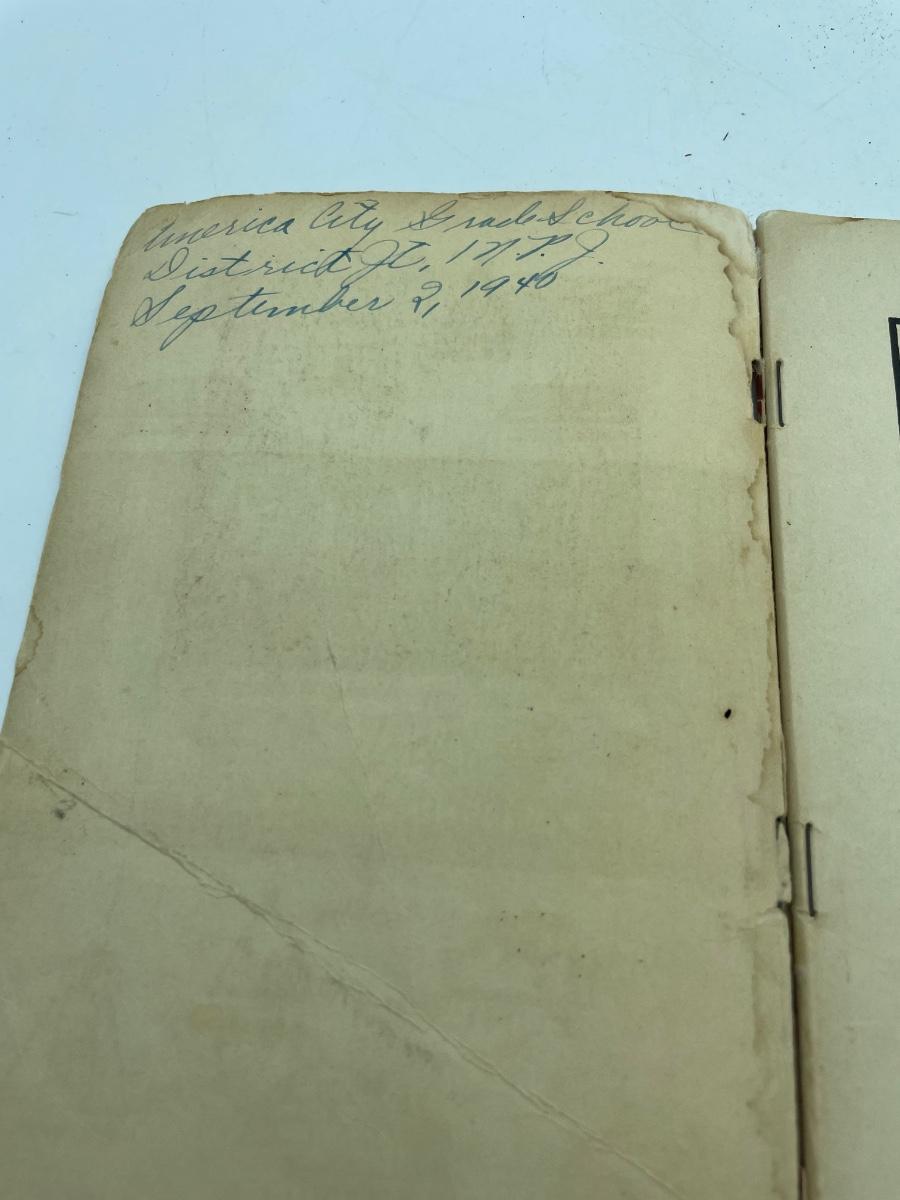 America City Grade School
District Jt. 1 N.P.J.
September 2, 1940